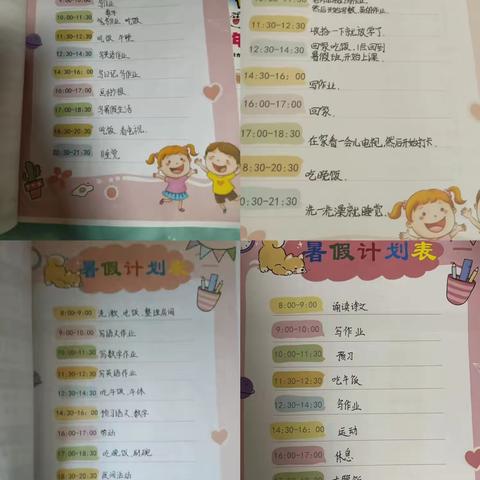 写作业
10:00-11:30 数学
写作业、吃饭
11:30-12:30 吃饭、午睡
12:30-14:30 写英语作业
14:30-16:00 写日记、写作业
16:00-17:00
17:00-18:30 写暑假生活
18:30-20:30 吃饭、看电视
20:30-21:30 睡觉
然后开始写数、英语作业.
11:30-12:30 收拾一下就放学了.
12:30-14:30 回家吃饭,
暑假班,开始上课.
14:30-16:00 写作业.
16:00-17:00 回家.
17:00-18:30 在家看一会儿电视,然后开始打卡.
8:30-20:30 吃晚饭.
0:30-21:30 洗一洗澡就睡觉.
暑假计划表
8:00-9:00 洗漱、吃饭、整理房间
9:00-10:00 写语文作业
10:00-11:30 写数学作业
11:30-12:30 写英语作业
12:30-14:30 吃午饭、午休
14:30-16:00 预习语文、数学
16:00-17:00 劳动
17:00-18:30 吃晚饭、刷碗
18:30-20:30
暑假计划表
8:00-9:00 诵读诗文
9:00-10:00 写作业
10:00-11:30 预习
11:30-12:30 吃午饭
12:30-14:30 写作业
14:30-16:00 运动
16:00-17:00 休息
17:00-18:30